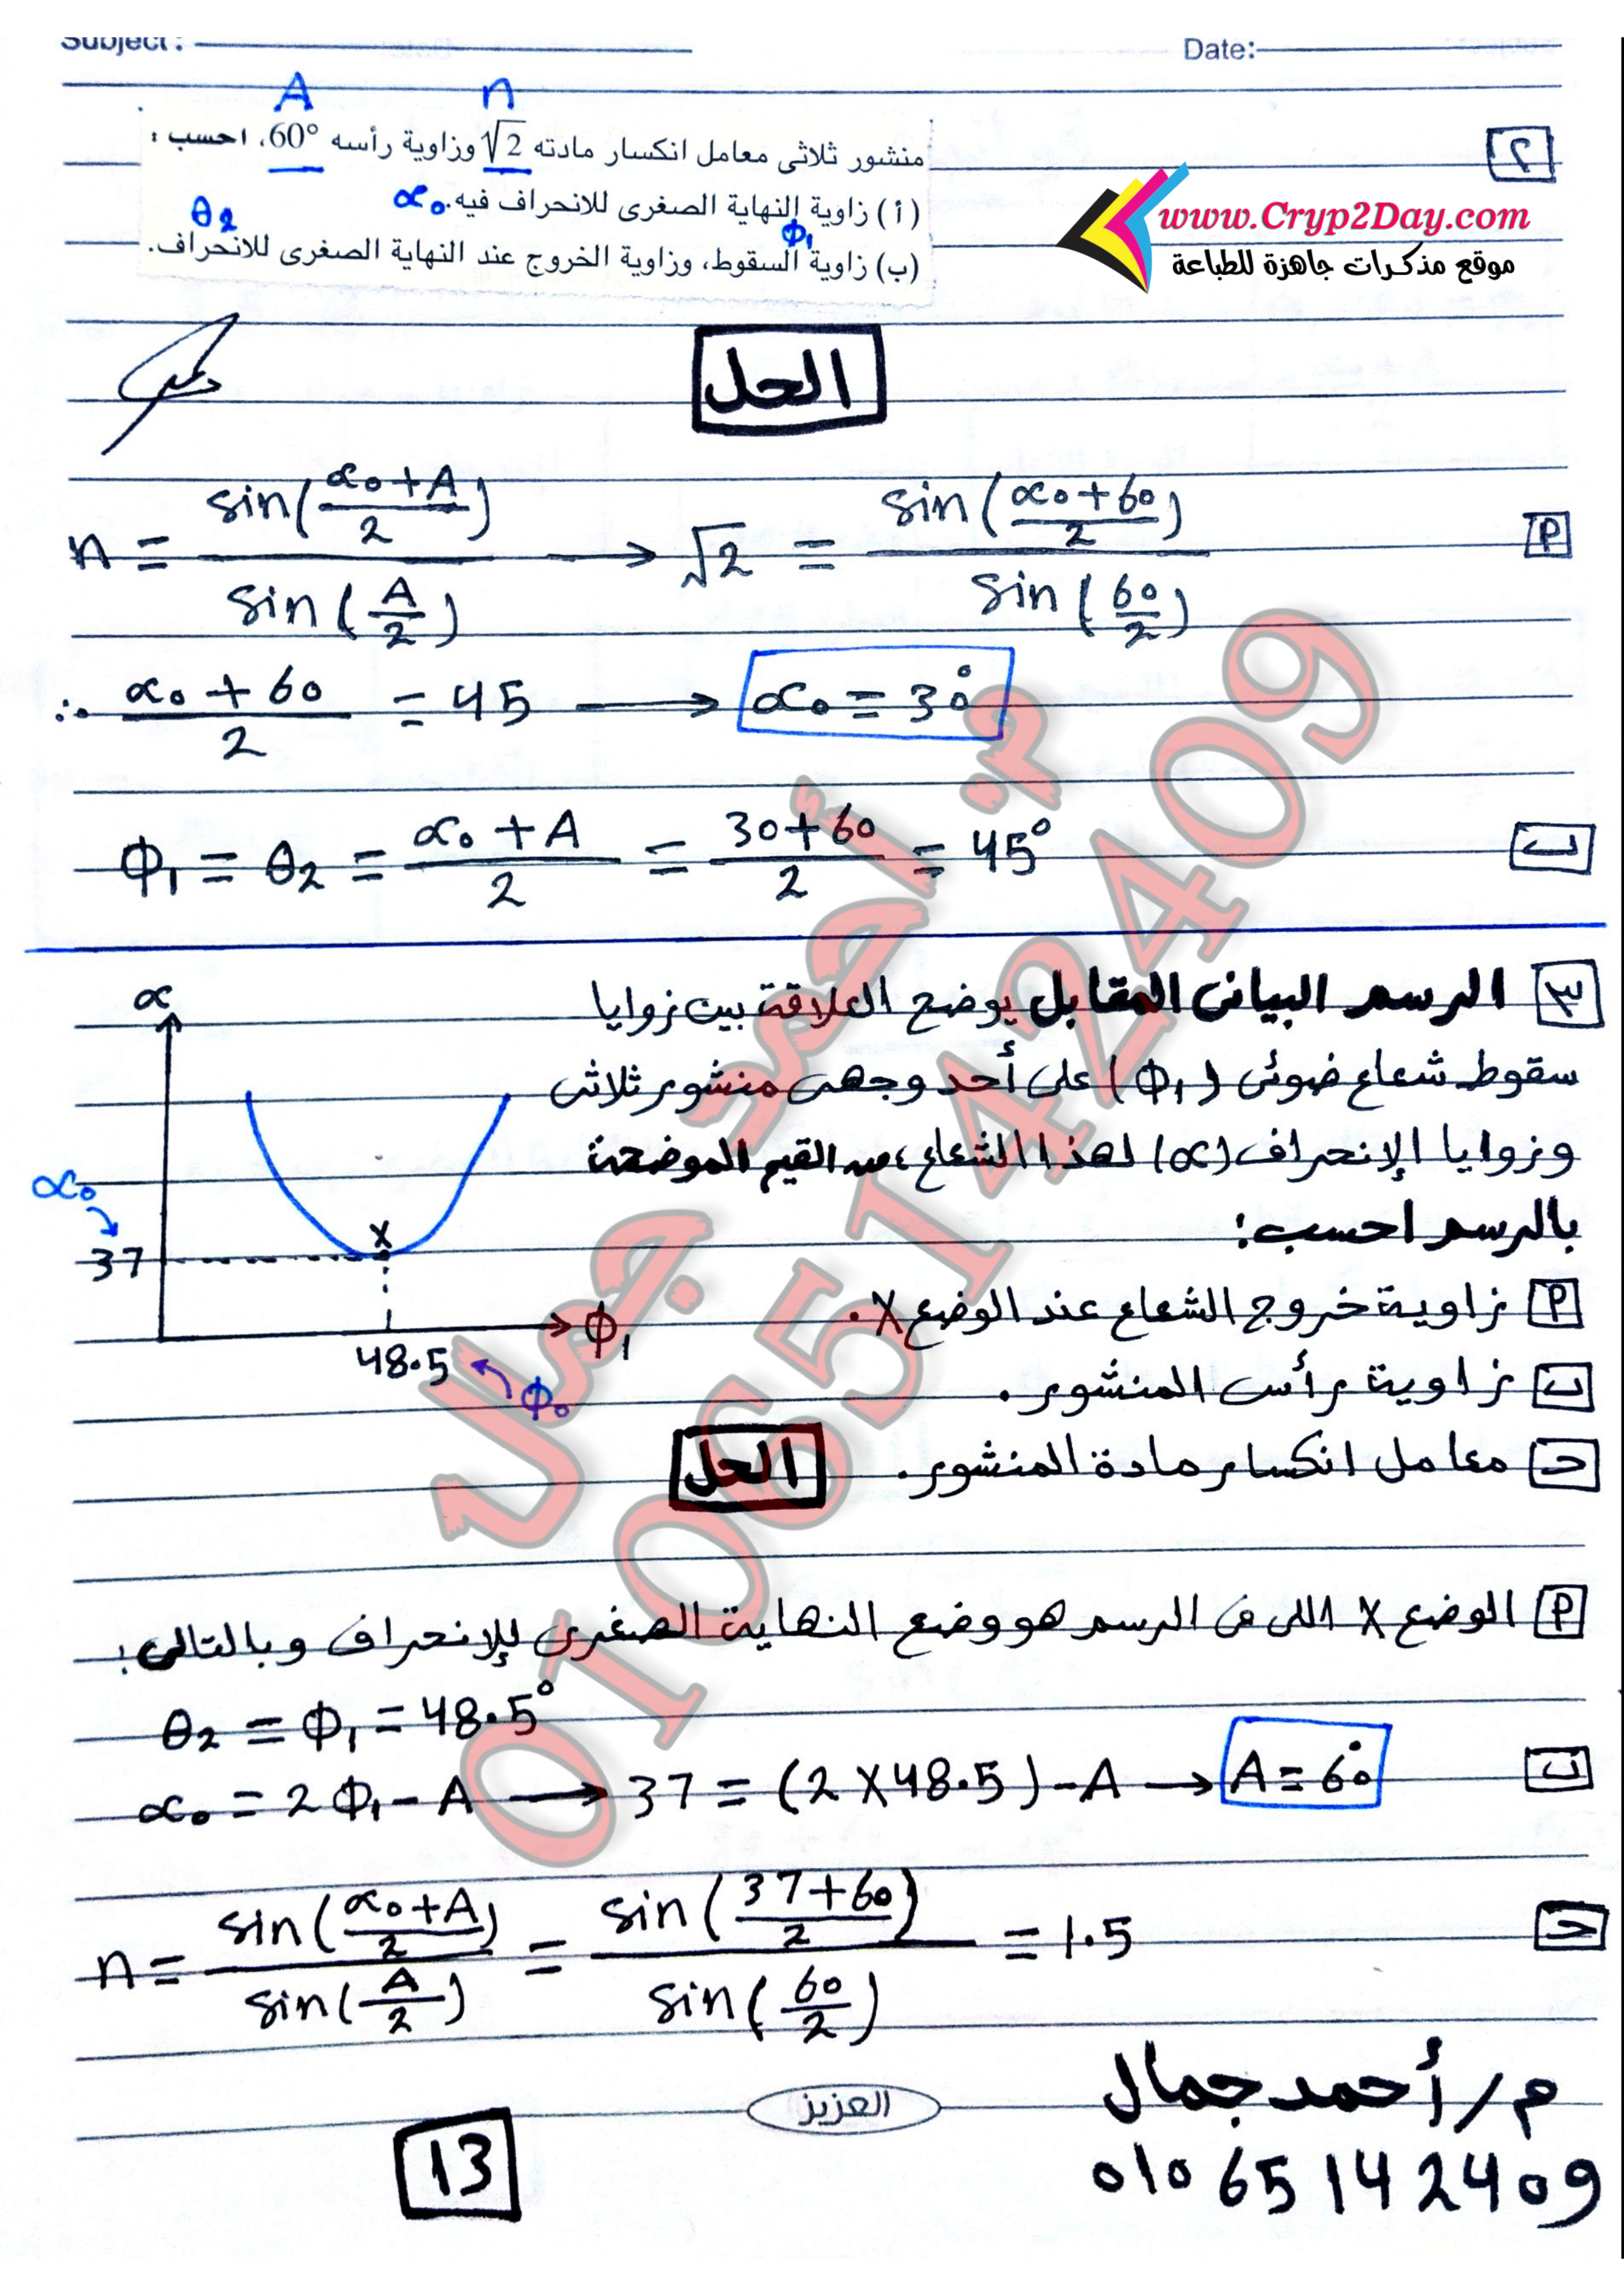 Subject: Date:
A n
٢
منشور ثلاثى معامل انكسار مادته √2 وزاوية رأسه 60°، احسب :
(أ) زاوية النهاية الصغرى للانحراف فيه. α₀
θ₂ ϕ₁
(ب) زاوية السقوط، وزاوية الخروج عند النهاية الصغرى للانحراف.
www.Cryp2Day.com
موقع مذكرات جاهزة للطباعة
الحل
أ n = sin((α₀+A)/2) / sin(A/2) → √2 = sin((α₀+60)/2) / sin(60/2)
∴ (α₀+60)/2 = 45 → α₀ = 30°
ب ϕ₁ = θ₂ = (α₀+A)/2 = (30+60)/2 = 45°
٣ الرسم البيانى المقابل يوضح العلاقة بين زوايا
سقوط شعاع ضوئى (ϕ₁) على أحد وجهى منشور ثلاثى
وزوايا الإنحراف (α) لهذا الشعاع، من القيم الموضحة
بالرسم احسب:
أ زاوية خروج الشعاع عند الوضع X.
ب زاوية رأس المنشور.
ج معامل انكسار مادة المنشور.
α
α₀
X
37
ϕ₁
48.5
ϕ₀
الحل
أ الوضع X اللى فى الرسم هو وضع النهاية الصغرى للإنحراف وبالتالى:
θ₂ = ϕ₁ = 48.5°
ب α₀ = 2ϕ₁ - A → 37 = (2 X 48.5) - A → A = 60°
ج n = sin((α₀+A)/2) / sin(A/2) = sin((37+60)/2) / sin(60/2) = 1.5
م. أحمد جمال
01065142409
العزيز
م/ أحمد جمال
01065142409
13